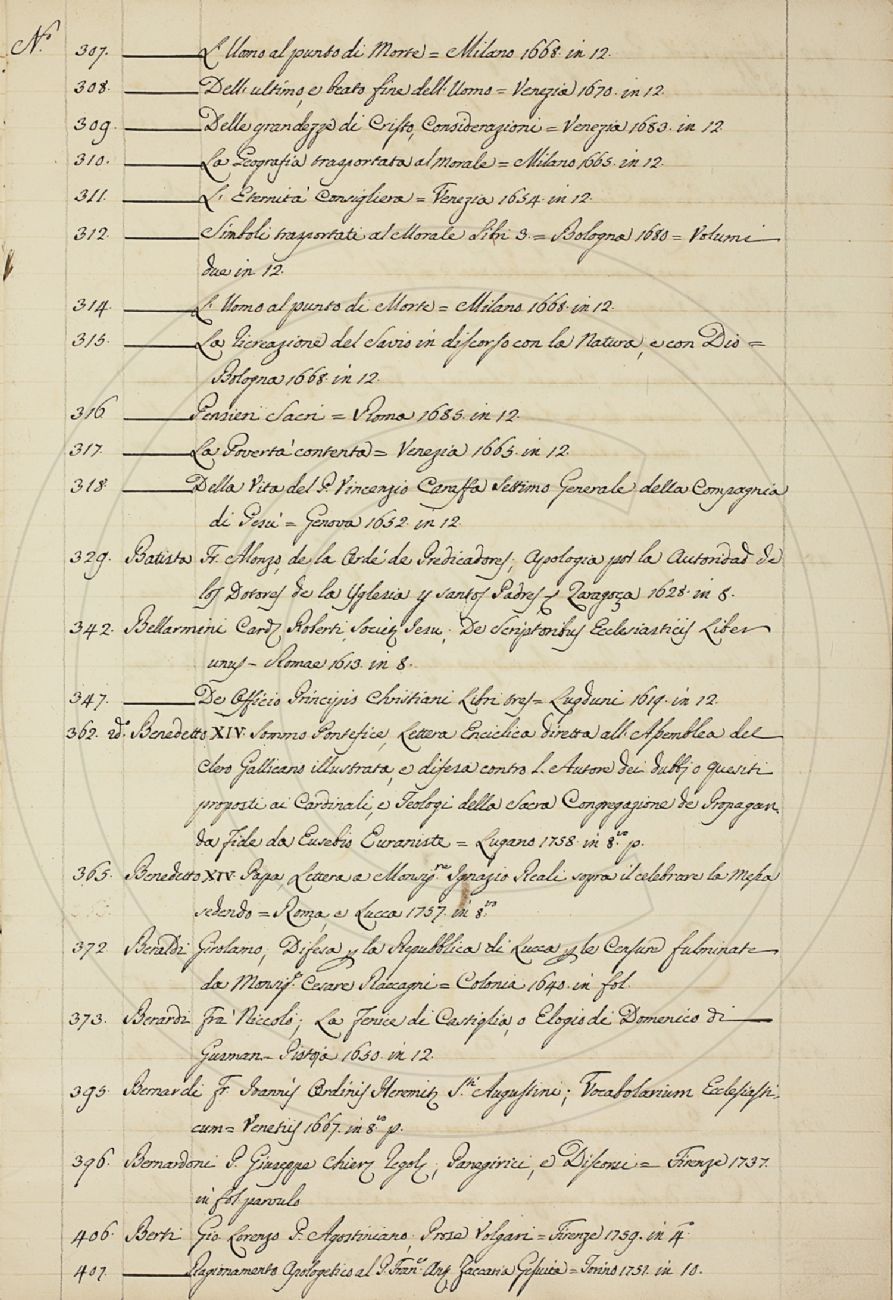 N.º 307. ——— L'Uomo al punto di Morte = Milano 1668. in 12.
308. ——— Dell'ultimo, e beato fine dell'Uomo = Venezia 1670. in 12.
309. ——— Delle grandezze di Cristo, Considerazioni = Venezia 1683. in 12.
310. ——— La Geografia trasportata al morale = Milano 1665. in 12.
311. ——— L'Eternità Consigliera = Venezia 1654. in 12.
312. ——— Simboli trasportati al Morale Libri 3. = Bologna 1680 = Volumi
due in 12.
314. ——— L'Uomo al punto di Morte = Milano 1668. in 12.
315. ——— La Ricreazione del Savio in discorso con la Natura, e con Dio =
Bologna 1668. in 12.
316. ——— Pensieri Sacri = Roma 1685. in 12.
317. ——— La Povertà contenta = Venezia 1665. in 12.
318. ——— Della Vita del P. Vincenzio Caraffa Settimo Generale della Compagnia
di Gesù = Genova 1652. in 12.
329. Batista Fr. Alonzo, de la Ordé de Predicadores; Apologia por la Autoridad de
los Dotores de la Yglesia y santos Padres = Zaragoça 1628. in 8.
342. Bellarmini Card. Roberti, Societ. Jesu; De Scriptoribus Ecclesiasticis Liber
unus = Romae 1613. in 8.
347. ——— De Officio Principis Christiani Libri tres = Lugduni 1619. in 12.
362. 2.º Benedetto XIV. Sommo Pontefice, Lettera Enciclica diretta all'Assemblea del
Clero Gallicano illustrata, e difesa contro l'Autore dei dubbj o quesiti
proposti ai Cardinali, e Teologi della Sacra Congregazione de Propagan
da fide da Eusebio Euraniste = Lugano 1758. in 8.vo p.
365. Benedetto XIV. Papa, Lettera a Monsig.re Ignazio Reali sopra il celebrare la Messa
sedendo = Roma, e Lucca 1757. in 8.vo
372. Beraldi Girolamo; Difesa p la Repubblica di Lucca p le Censure fulminate
da Monsig. Cesare Raccagni = Colonia 1640. in fol.
373. Berardi Frà Niccolò; La Fenice di Castiglia, o Elogio di Domenico di
Gusman = Pistoja 1650. in 12.
395. Bernardi Fr. Joannis Ordinis Heremit. S.ti Augustini; Vocabolarium Ecclesiasti
cum = Venetiis 1667. in 8.vo p.
396. Bernardoni P. Giuseppe Chier. Regol.; Panegirici, e Discorsi = Firenze 1737.
in fol. parvulo
406. Berti Gio. Lorenzo P. Agostiniano, Prose Volgari = Firenze 1759. in 4.º
407. ——— Ragionamento Apologetico al P. Fran.co Ant. Zaccaria Gesuita = Torino 1751. in 10.